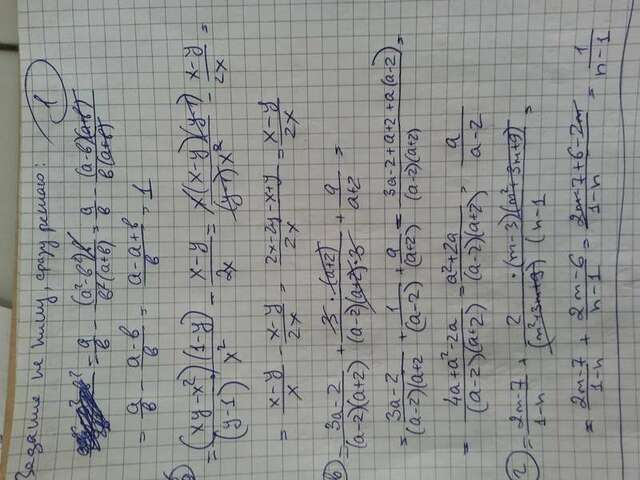 Задание не пишу, сразу решаю: 1
= a/b - (a²-b²)b/b²(a+b) = a/b - (a-b)(a+b)/b(a+b)
= a/b - a-b/b = a-a+b/b = 1
= (xy-x²)(1-y)/(y-1) x² - x-y/2x = x(x-y)(y-1)/(y-1)x² - x-y/2x =
= x-y/x - x-y/2x = 2x-2y-x+y/2x = x-y/2x
в) = 3a-2/(a-2)(a+2) + 3·(a+2)/(a-2)(a+2)·3 + a/a+2 =
= 3a-2/(a-2)(a+2 + 1/(a-2) + a/(a+2) = 3a-2+a+2+a(a-2)/(a-2)(a+2) =
4a+a²-2a/(a-2)(a+2) = a²+2a/(a-2)(a+2) = a/a-2
г) = 2m-7/1-n + 2/(m²+3m+9) · (m-3)(m²+3m+9)/(n-1 =
= 2m-7/1-n + 2m-6/n-1 = 2m-7+6-2m/1-n = 1/n-1